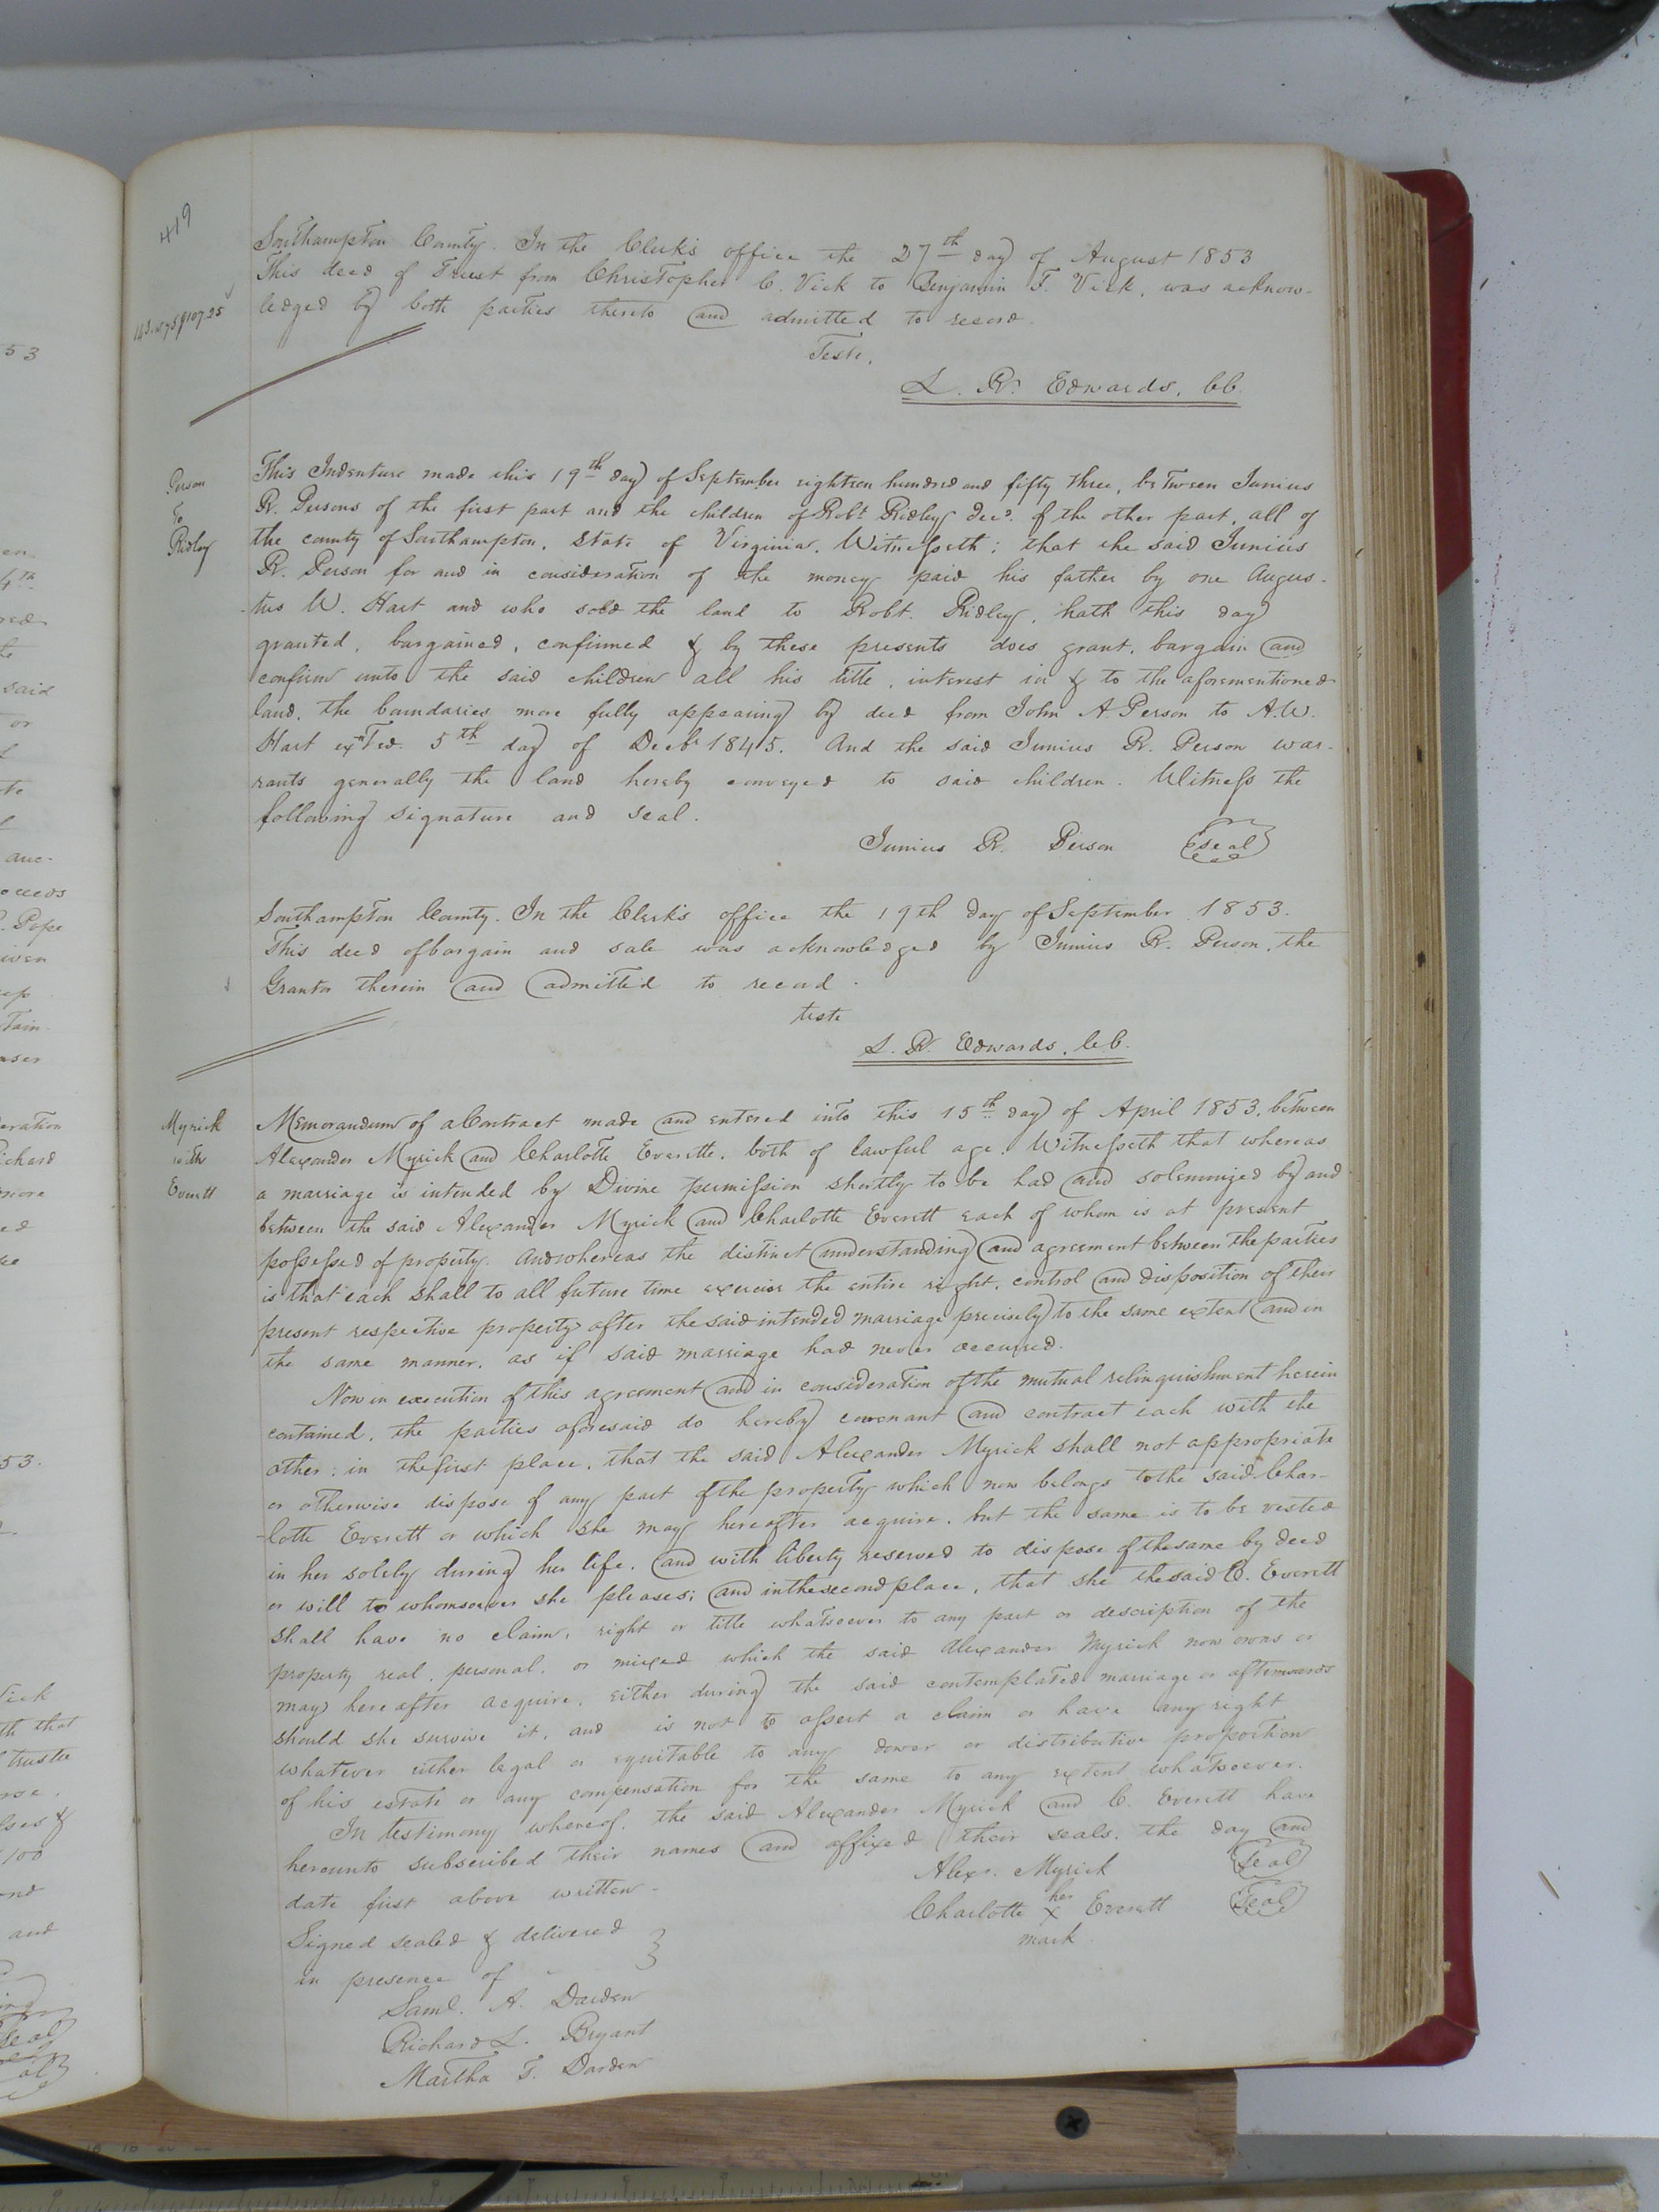 419
Southampton County. In the Clerk's office the 27th day of August 1853
This deed of Trust from Christopher C. Vick to Benjamin F. Vick, was acknow-
ledged by both parties thereto and admitted to record.
Teste,
L. R. Edwards, CC.
Person
To
Ridley
This Indenture made this 19th day of September eighteen hundred and fifty three, between Junius
R. Persons of the first part and the children of Robt Ridley Decd. of the other part, all of
the county of Southampton, State of Virginia, Witnesseth; that the said Junius
R. Person for and in consideration of the money paid his father by one Augus-
-tus W. Hart and who sold the land to Robt. Ridley, hath this day
granted, bargained, confirmed & by these presents does grant, bargain and
confirm unto the said children all his title, interest in & to the aforementioned
land, the boundaries more fully appearing by deed from John A. Person to A.W.
Hart exted. 5th day of Decbr 1845. And the said Junius R. Person war-
rants generally the land hereby conveyed to said children. Witness the
following signature and seal.
Junius R. Person Seal
Southampton County. In the Clerk's office the 19th day of September 1853.
This deed of bargain and sale was acknowledged by Junius R. Person, the
Grantor therein and admitted to record.
teste
L. R. Edwards, CC.
Myrick
with
Everett
Memorandum of a Contract made and entered into this 15th day of April 1853, between
Alexander Myrick and Charlotte Everette, both of lawful age. Witnesseth that whereas
a marriage is intended by Divine permission shortly to be had and solemnized by and
between the said Alexander Myrick and Charlotte Everett each of whom is at present
possessed of property. And whereas the distinct understanding and agreement between the parties
is that each shall to all future time exercise the entire right, control and disposition of their
present respective property after the said intended marriage precisely to the same extent and in
the same manner, as if said marriage had never occurred.
Now in execution of this agreement and in consideration of the mutual relinquishment herein
contained, the parties aforesaid do hereby covenant and contract each with the
other; in the first place, that the said Alexander Myrick shall not appropriate
or otherwise dispose of any part of the property which now belongs to the said Char-
-lotte Everett or which she may hereafter acquire, but the same is to be vested
in her solely during her life, and with liberty reserved to dispose of the same by deed
or will to whomsoever she pleases; and in the second place, that she the said C. Everett
shall have no claim, right or title whatsoever to any part or description of the
property real, personal, or mixed which the said Alexander Myrick now owns or
may hereafter acquire, either during the said contemplated marriage or afterwards
should she survive it, and is not to assert a claim or have any right
whatever either legal or equitable to any dower or distributive proportion
of his estate or any compensation for the same to any extent whatsoever.
In testimony whereof, the said Alexander Myrick and C. Everett have
hereunto subscribed their names and affixed their seals, the day and
date first above written.
Alexr. Myrick Seal
her
Charlotte X Everett Seal
mark
Signed sealed & delivered
in presence of
Saml. A. Darden
Richard L. Bryant
Martha T. Darden